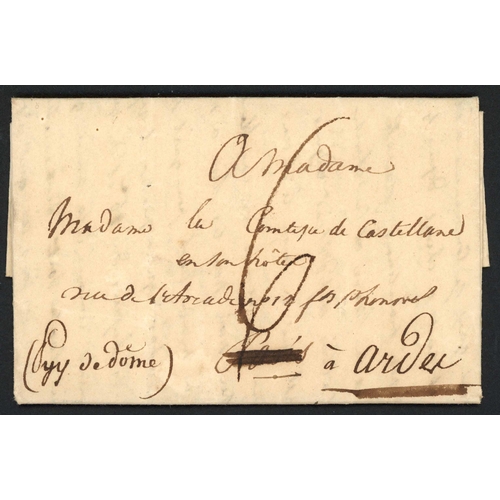 A Madame
Madame la Comtesse de Castellane
en son hôtel
rue de l'Arcade no 12 fb St honoré
(Puy de dôme) à ardes
6